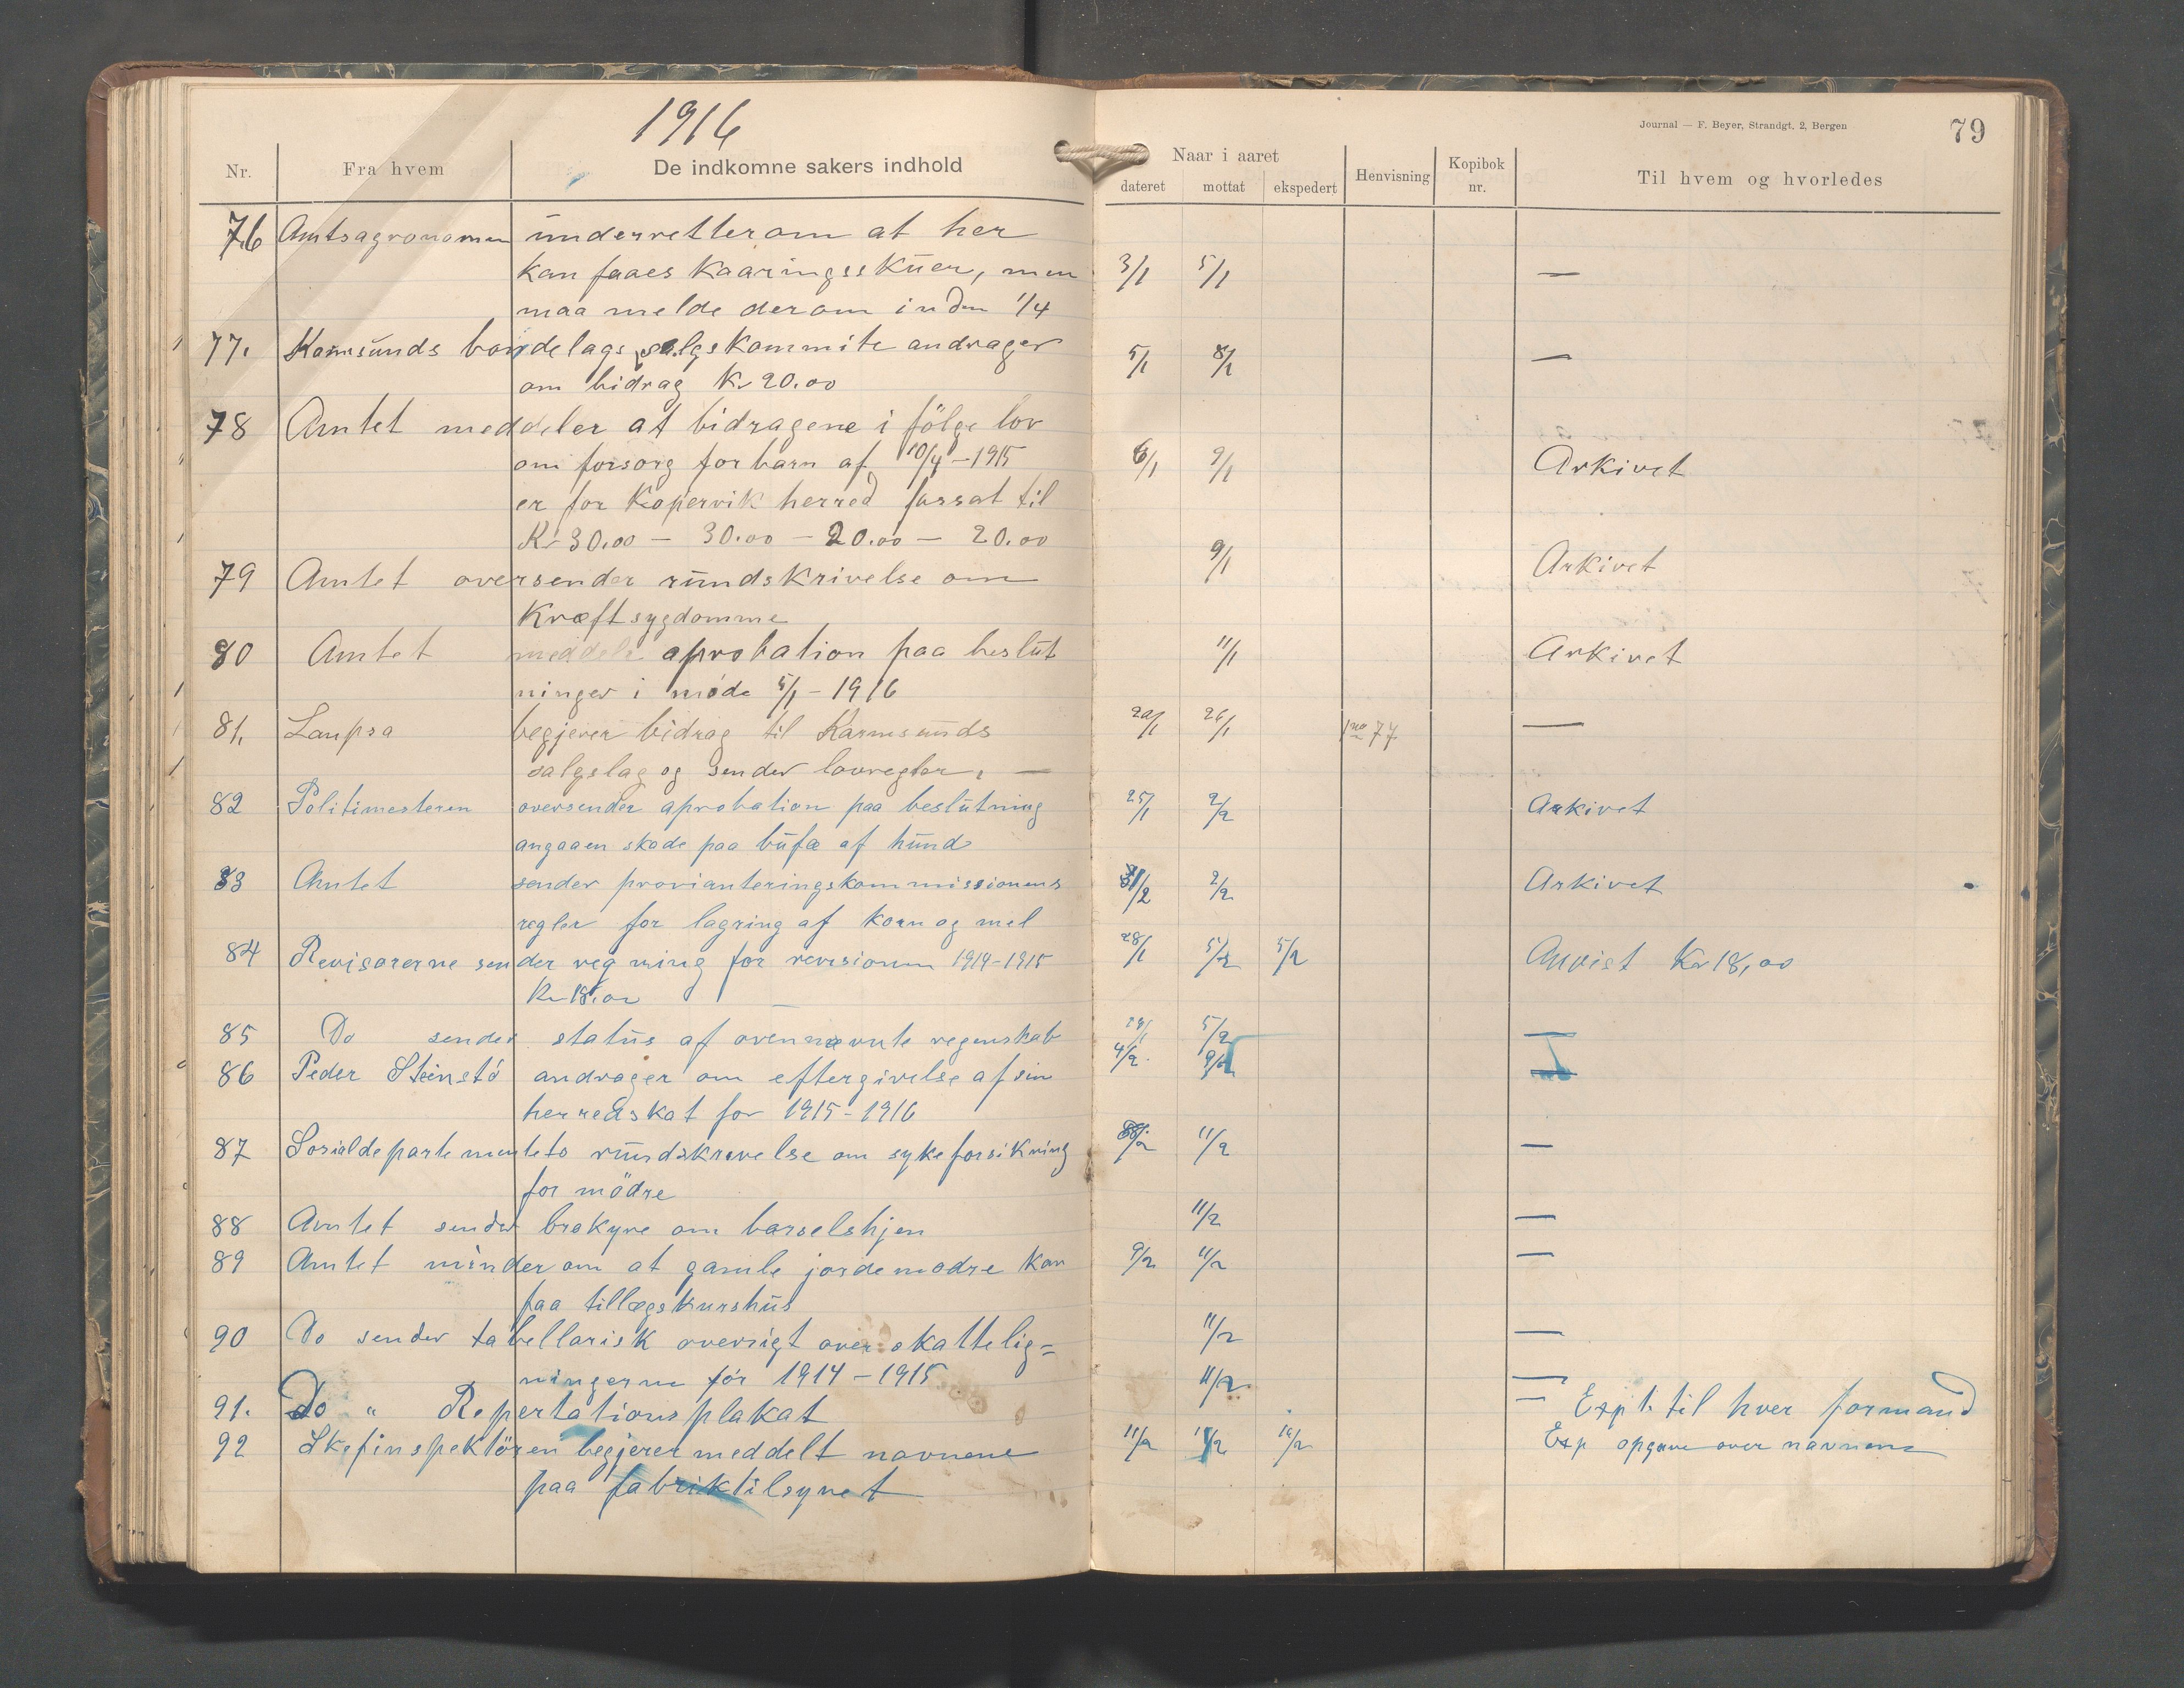 1916
Journal — F. Beyer, Strandgt. 2, Bergen
79
Nr. Fra hvem De indkomne sakers indhold Naar i aaret dateret mottat ekspedert Henvisning Kopibok nr. Til hvem og hvorledes
76 Amtsagronomen underretter om at her
kan faaes Kaaringsskuer, men 3/1 5/1 —
maa melde derom inden 1/4
77. Karmsunds bondelags salgskommite andrager 5/1 8/1 —
om bidrag Kr 20.00
78 Amtet meddeler at bidragene i følge lov
om forsorg for barn af 10/4 - 1915 6/1 9/1 Arkivet
er for Kopervik herred fassat til
Kr 30.00 — 30.00 — 20.00 — 20.00
79 Amtet oversender rundskrivelse om 9/1 Arkivet
Kræftsygdomme
80 Amtet meddeler aprobation paa beslut 11/1 Arkivet
ninger i møde 5/1 - 1916
81, begjerer bidrag til Karmsunds 26/1 no 77 —
salgslag og sender lovregler. —
82 Politimesteren oversender aprobation paa beslutning 25/1 2/2 Arkivet
angaaen skade paa bufæ af hund
83 Amtet sender provianteringskommissionens 2/2 Arkivet
regler for lagring af korn og mel
84 Revisorerne sender regning for revisionen 1914-1915 28/1 5/2 5/2 Anvist Kr 18,00
Kr 18.00
85 Do sender status af ovennævnte regenskab 5/2 —
86 Peder Steinstø andrager om eftergivelse af sin 4/2 9/2 —
herredskat for 1915-1916
87 Sosialdepartementets rundskrivelse om sykeforsikring 11/2 —
for mödre
88 Amtet sender brokyre om barselshjen 11/2 —
89 Amtet minder om at gamle jordemødre kan 9/2 11/2 —
faa tillægskurshus
90 Do sender tabellarisk oversigt over skattelig= 11/2 —
ningerne för 1914 - 1915
91. Do " Repertations plakat 11/2 — Expt. til hver formand
92 begjerer meddelt navnene 11/2 Exp opgave over navnene
paa fabriktilsynet